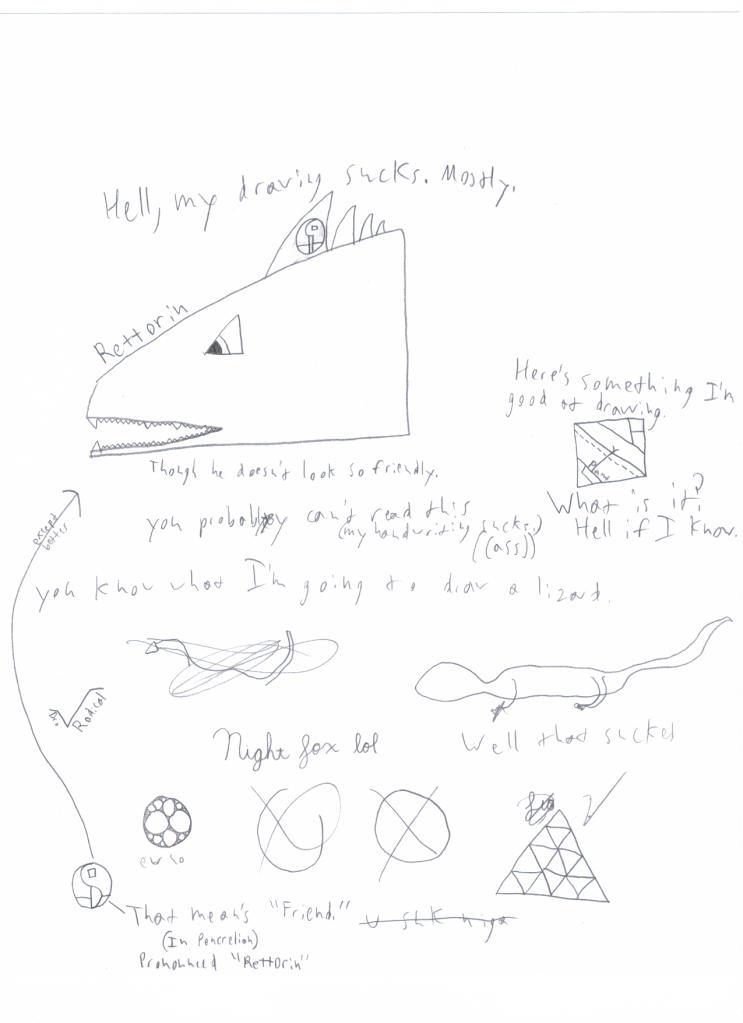 Hell, my drawing sucks. Mostly.
Rettorin
Here's something I'm
good at drawing.
Though he doesn't look so friendly.
What is it?
Hell if I know.
you probably can't read this
(my handwriting sucks.)
((ass))
except
better
you know what I'm going to draw a lizard.
Radical
Well that sucked
Night fox lol
ew no
That mean's "Friend"
(In Pencretion)
Pronounced "Rettorin"